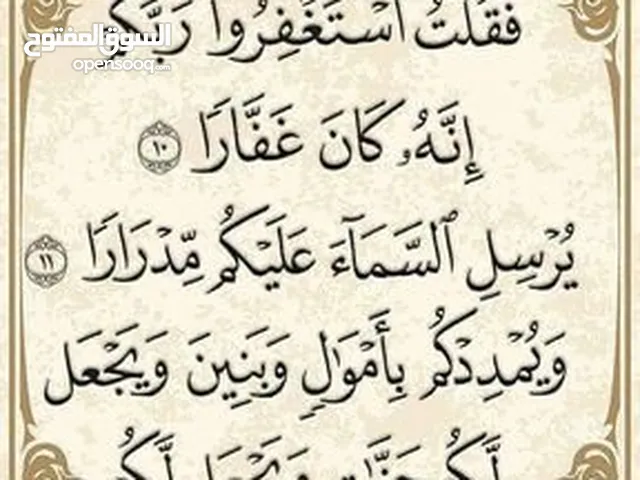 السوق المفتوح
opensooq.com
فَقُلْتُ ٱسْتَغْفِرُوا۟ رَبَّكُمْ
إِنَّهُۥ كَانَ غَفَّارًا ١٠
يُرْسِلِ ٱلسَّمَآءَ عَلَيْكُم مِّدْرَارًا ١١
وَيُمْدِدْكُم بِأَمْوَٰلٍ وَبَنِينَ وَيَجْعَل
لَّكُمْ جَنَّٰتٍ وَيَجْعَل لَّكُمْ